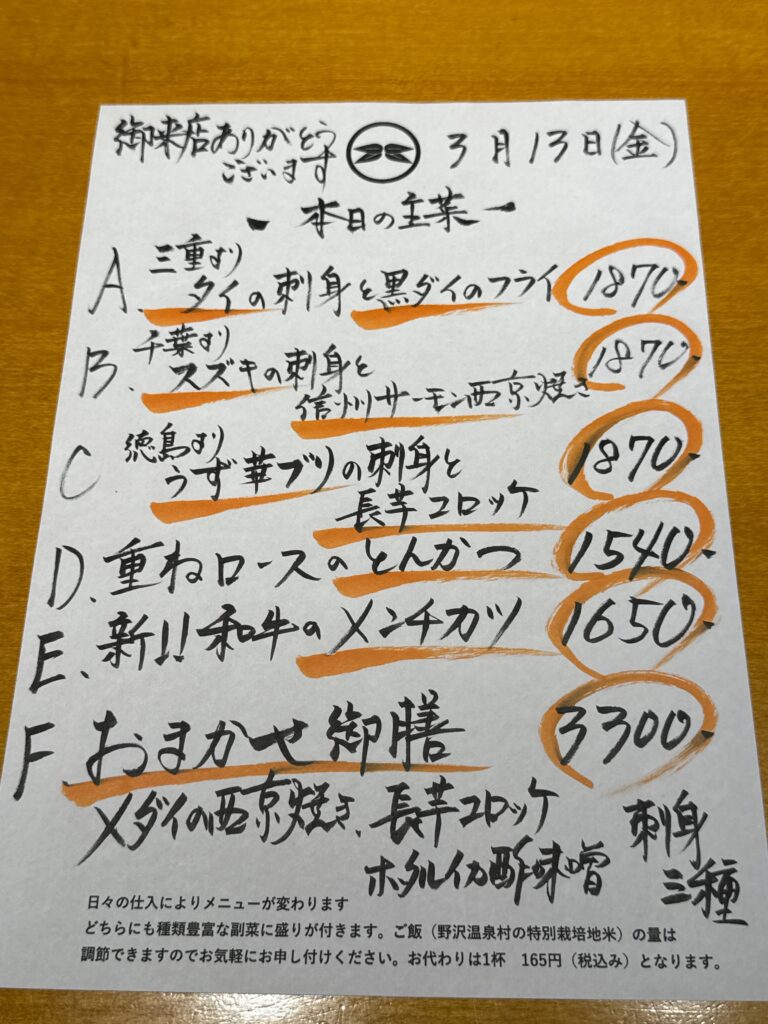 御来店ありがとう
ございます
3月13日(金)
- 本日の主菜 -
A. 三重より
タイの刺身と黒ダイのフライ 1870-
B. 千葉より
スズキの刺身と
信州サーモン西京焼き 1870-
C 徳島より
うず華ブリの刺身と 1870-
長芋コロッケ
D. 重ねロースのとんかつ 1540-
E. 新!! 和牛のメンチカツ 1650-
F. おまかせ御膳 3300-
メダイの西京焼き、長芋コロッケ
ホタルイカ酢味噌
刺身
三種
日々の仕入によりメニューが変わります
どちらにも種類豊富な副菜に盛りが付きます。ご飯(野沢温泉村の特別栽培地米)の量は
調節できますのでお気軽にお申し付けください。お代わりは1杯 165円(税込み)となります。